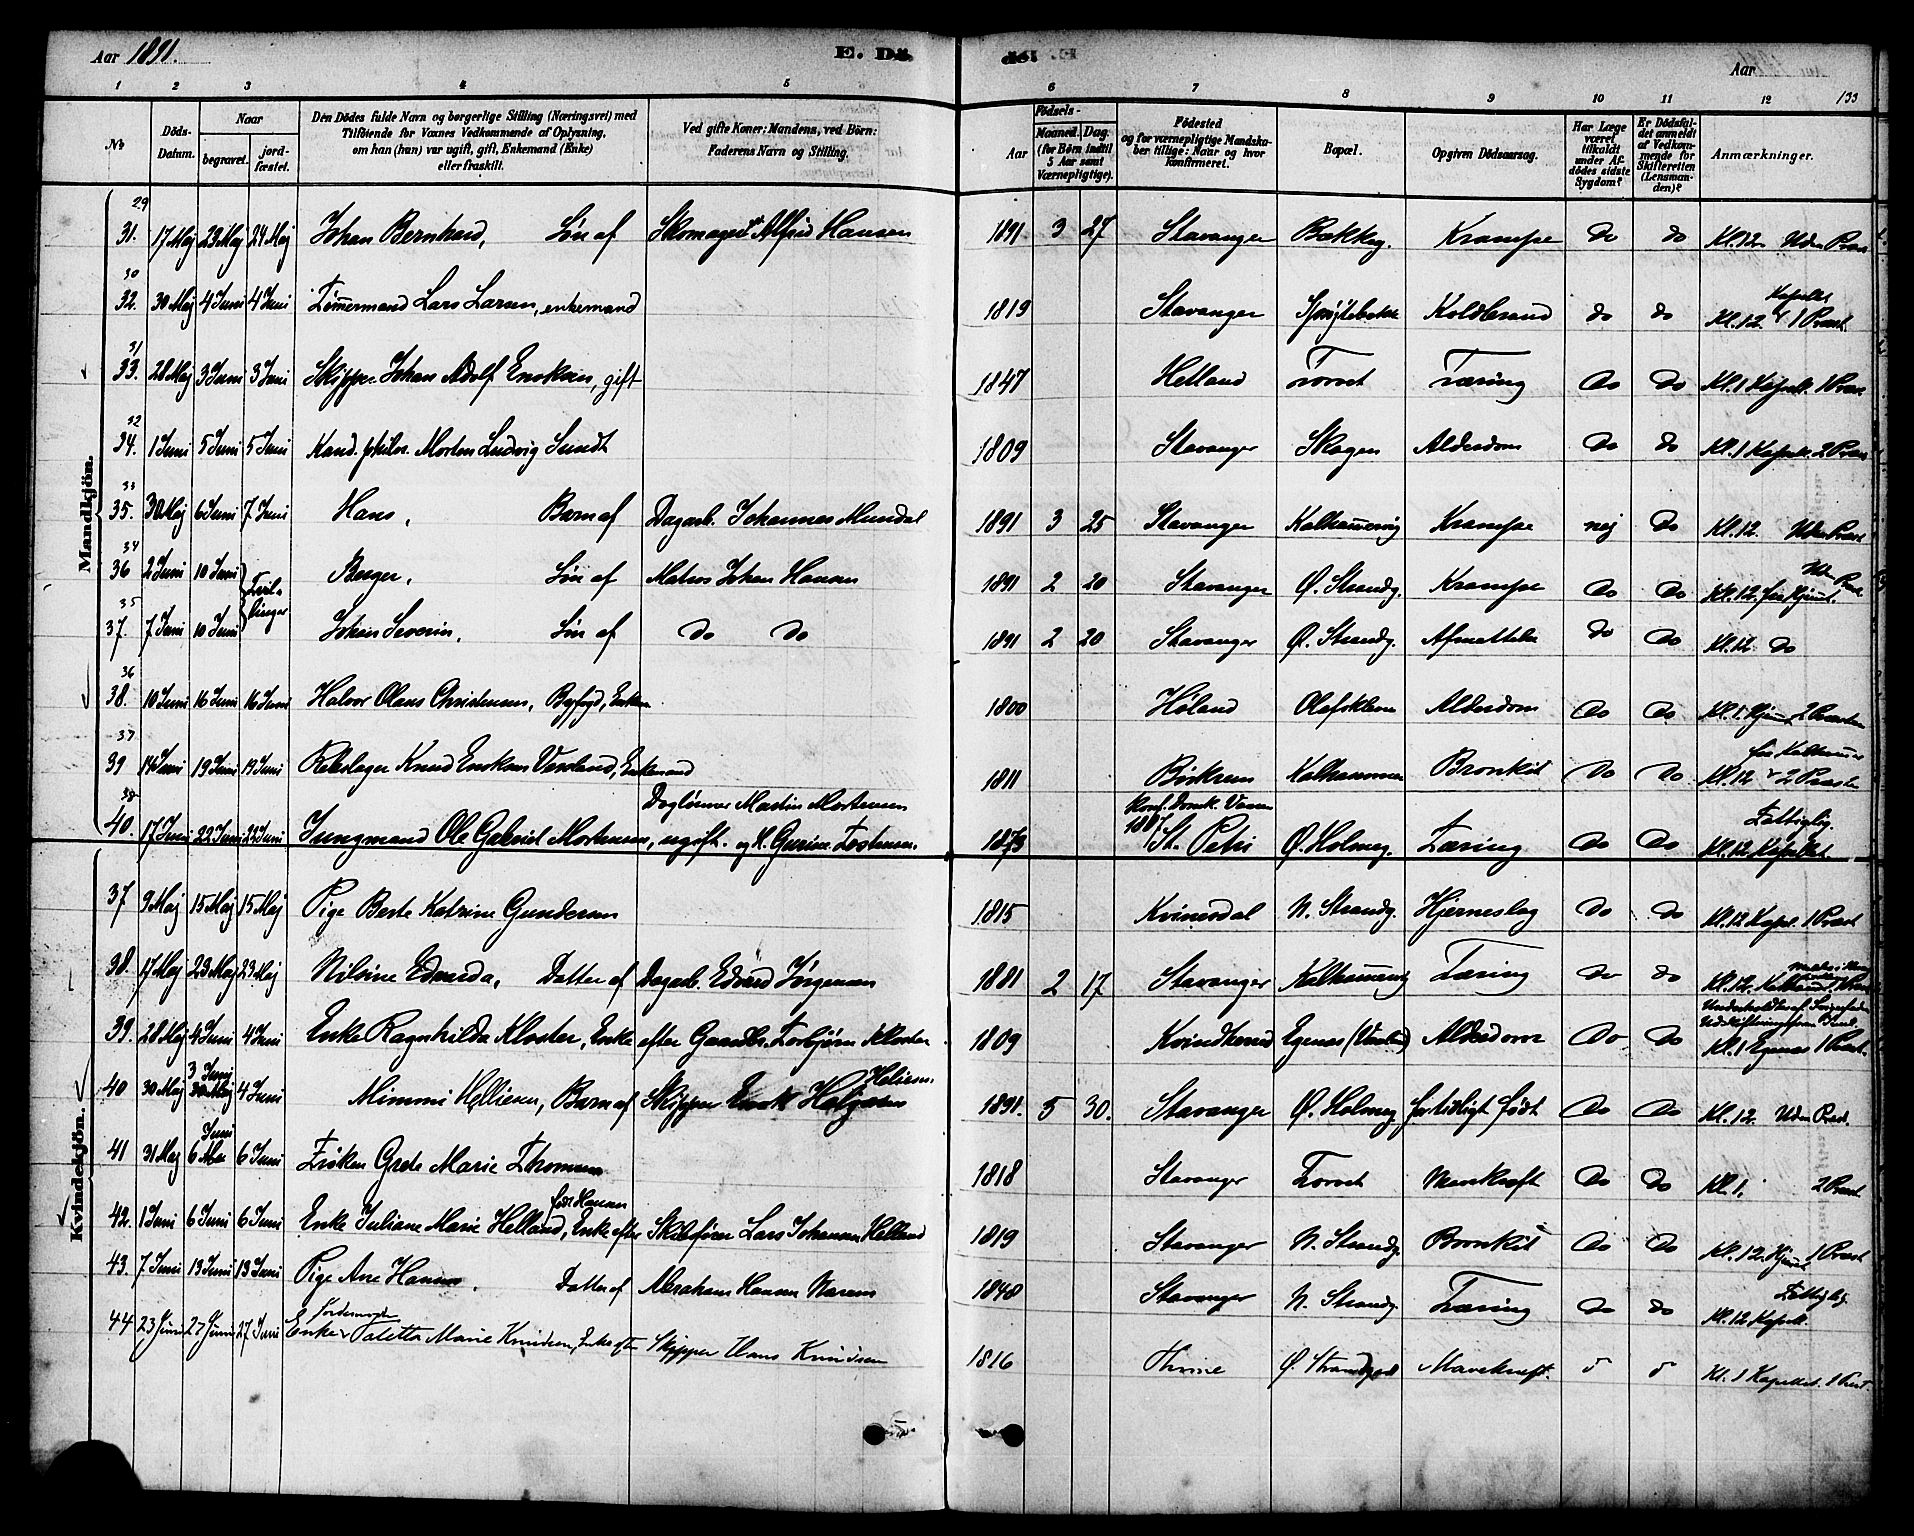 Aar 1891.
E. Dö.
dö! .E
Aar
133
1 2 3 4 5
6 7 8 9 10 11 12
No
Döds-Datum.
Naar
begravet.
jord-fæstet.
Den Dödes fulde Navn og borgerlige Stilling (Næringsvei) med
Tilföiende for Voxnes Vedkommende af Oplysning,
om han (hun) var ugift, gift, Enkemand (Enke)
eller fraskilt.
Ved gifte Koner: Mandens, ved Börn:
Faderens Navn og Stilling.
Födsels-
Aar
Maaned. Dag.
(for Börn indtil
5 Aar samt
Værnepligtige).
Födested
og for værnepligtige Mandska-
ber tillige: Naar og hvor
konfirmeret.
Bopæl.
Opgiven Dödsaarsag.
Har Læge
været
tilkaldt
under Af-
dödes sidste
Sygdom?
Er Dödsfal-
det anmeldt
af Vedkom-
mende for
Skifteretten
(Lensman-
den)?
Anmærkninger.
Mandkjön.
29
31. 17 Maj 23 Maj 24 Maj Johan Bernhard, Søn af Skomager Alfred Hansen 1891 3 27 Stavanger Bakkeg. Krampe do do Kl.12. Uden Præst
30
32. 30 Maj 4 Juni 4 Juni Tømmermand Lars Larsen, enkemand 1819 Stavanger Koldbrand do do Kl.12. Kapellet 1 Præst.
31
33. 28 Maj 3 Juni 3 Juni Skipper Johan Adolf Enoksen, gift 1847 Hetland Torvet Tæring do do Kl.1 Kapell. 1 Præst
32
34. 1 Juni 5 Juni 5 Juni Kand. philos. Morten Ludvig Sundt 1809 Stavanger Skagen Alderdom do do Kl.1 Kapell. 2 Præst
33
35. 30 Maj 6 Juni 7 Juni Hans, Barn af Dagarb. Johannes Mundal 1891 3 25 Stavanger Kalhammervig Krampe nej do Kl.12. Uden Præst
34
36 2 Juni 10 Juni Tvil-linger Berger, Søn af Matros Johan Hansen 1891 2 20 Stavanger Ø. Strandg. Krampe do do Kl.12. fra Hjemmet. Uden Præst.
35
37. 7 Juni 10 Juni Johan Severin, Søn af do do 1891 2 20 Stavanger Ø. Strandg. Afmattelse do do Kl.12 do
36
38. 10 Juni 16 Juni 16 Juni Halvor Olaus Christensen, Byfogd, Enkem 1800 Høland Olafskleven Alderdom do do Kl.1. Hjem 2 Præster
37
39 14 Juni 19 Juni 19 Juni Rebslager Knud Enoksen, Enkemand 1811 Kalhammer Bronkit do do Kl.12 fra Kalhammer 2 Præster
38
40. 17 Juni 22 Juni 22 Juni Jungmand Ole Gabriel Mortensen, ugift. Dagløner Martin Mortensen og H. Gurine Tostensen. 1873 Konf. Domk. Vaaren 1887 St. Petri Ø. Holmeg. Tæring do do Fattiglig. Kl.12 Kapellet.
Kvindekjön.
37 9 Maj 15 Maj 15 Maj Pige Berte Katrine Gundersen 1815 Kvinesdal N. Strandg. Hjerneslag do do Kl.12 Kapel. 1 Præst
38. 17 Maj 23 Maj 23 Maj Nilsine Edvarda, Datter af Dagarb. Edvard Jørgensen 1881 2 17 Stavanger Kalhammervig Tæring do do Kl.12. 1 Præst
39. 28 Maj 4 Juni 4 Juni Enke Ragnhilda Kloster, Enke efter Gaardbr. Torbjørn Kloster 1809 Kvindherred Egenæs Alderdom do do Kl.1 Egenæs 1 Præst.
40 30 Maj 3 Juni 30 Maj 4 Juni Mimmi Helliesen, Barn af Skipper Helliesen 1891. 5 30. Stavanger Ø. Holmeg. for tidligt født do do Kl.12. Uden Præst.
41 31 Maj 6 Juni 6 Juni Frøken Grete Marie Thomsen 1818 Stavanger Torvet Mavekræft do do Kl.1. 2 Præst.
42. 1 Juni 6 Juni 6 Juni Enke Juliane Marie Helland, født Hansen Enke efter Skibsfører Lars Johannes Helland 1819 Stavanger N. Strandg. Bronkit do do Kl.12. Hjem 1 Præst
43. 7 Juni 13 Juni 13 Juni Pige Ane Hansen, Datter af Abraham Hansen 1848 Stavanger N. Strandg. Tæring do do Fattiglig. Kl.12 Kapell.
44 23 Juni 27 Juni 27 Juni Enke Taletta Marie Knudsen, Enke efter Skipper Hans Knudsen 1816 Ø. Strandgade Mavekræft. Kl.1 Kapellet. 1 Præst.